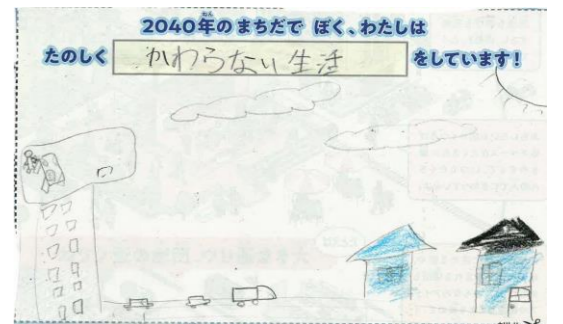 2040年のまちだで ぼく、わたしは
たのしく かわらない生活 をしています!